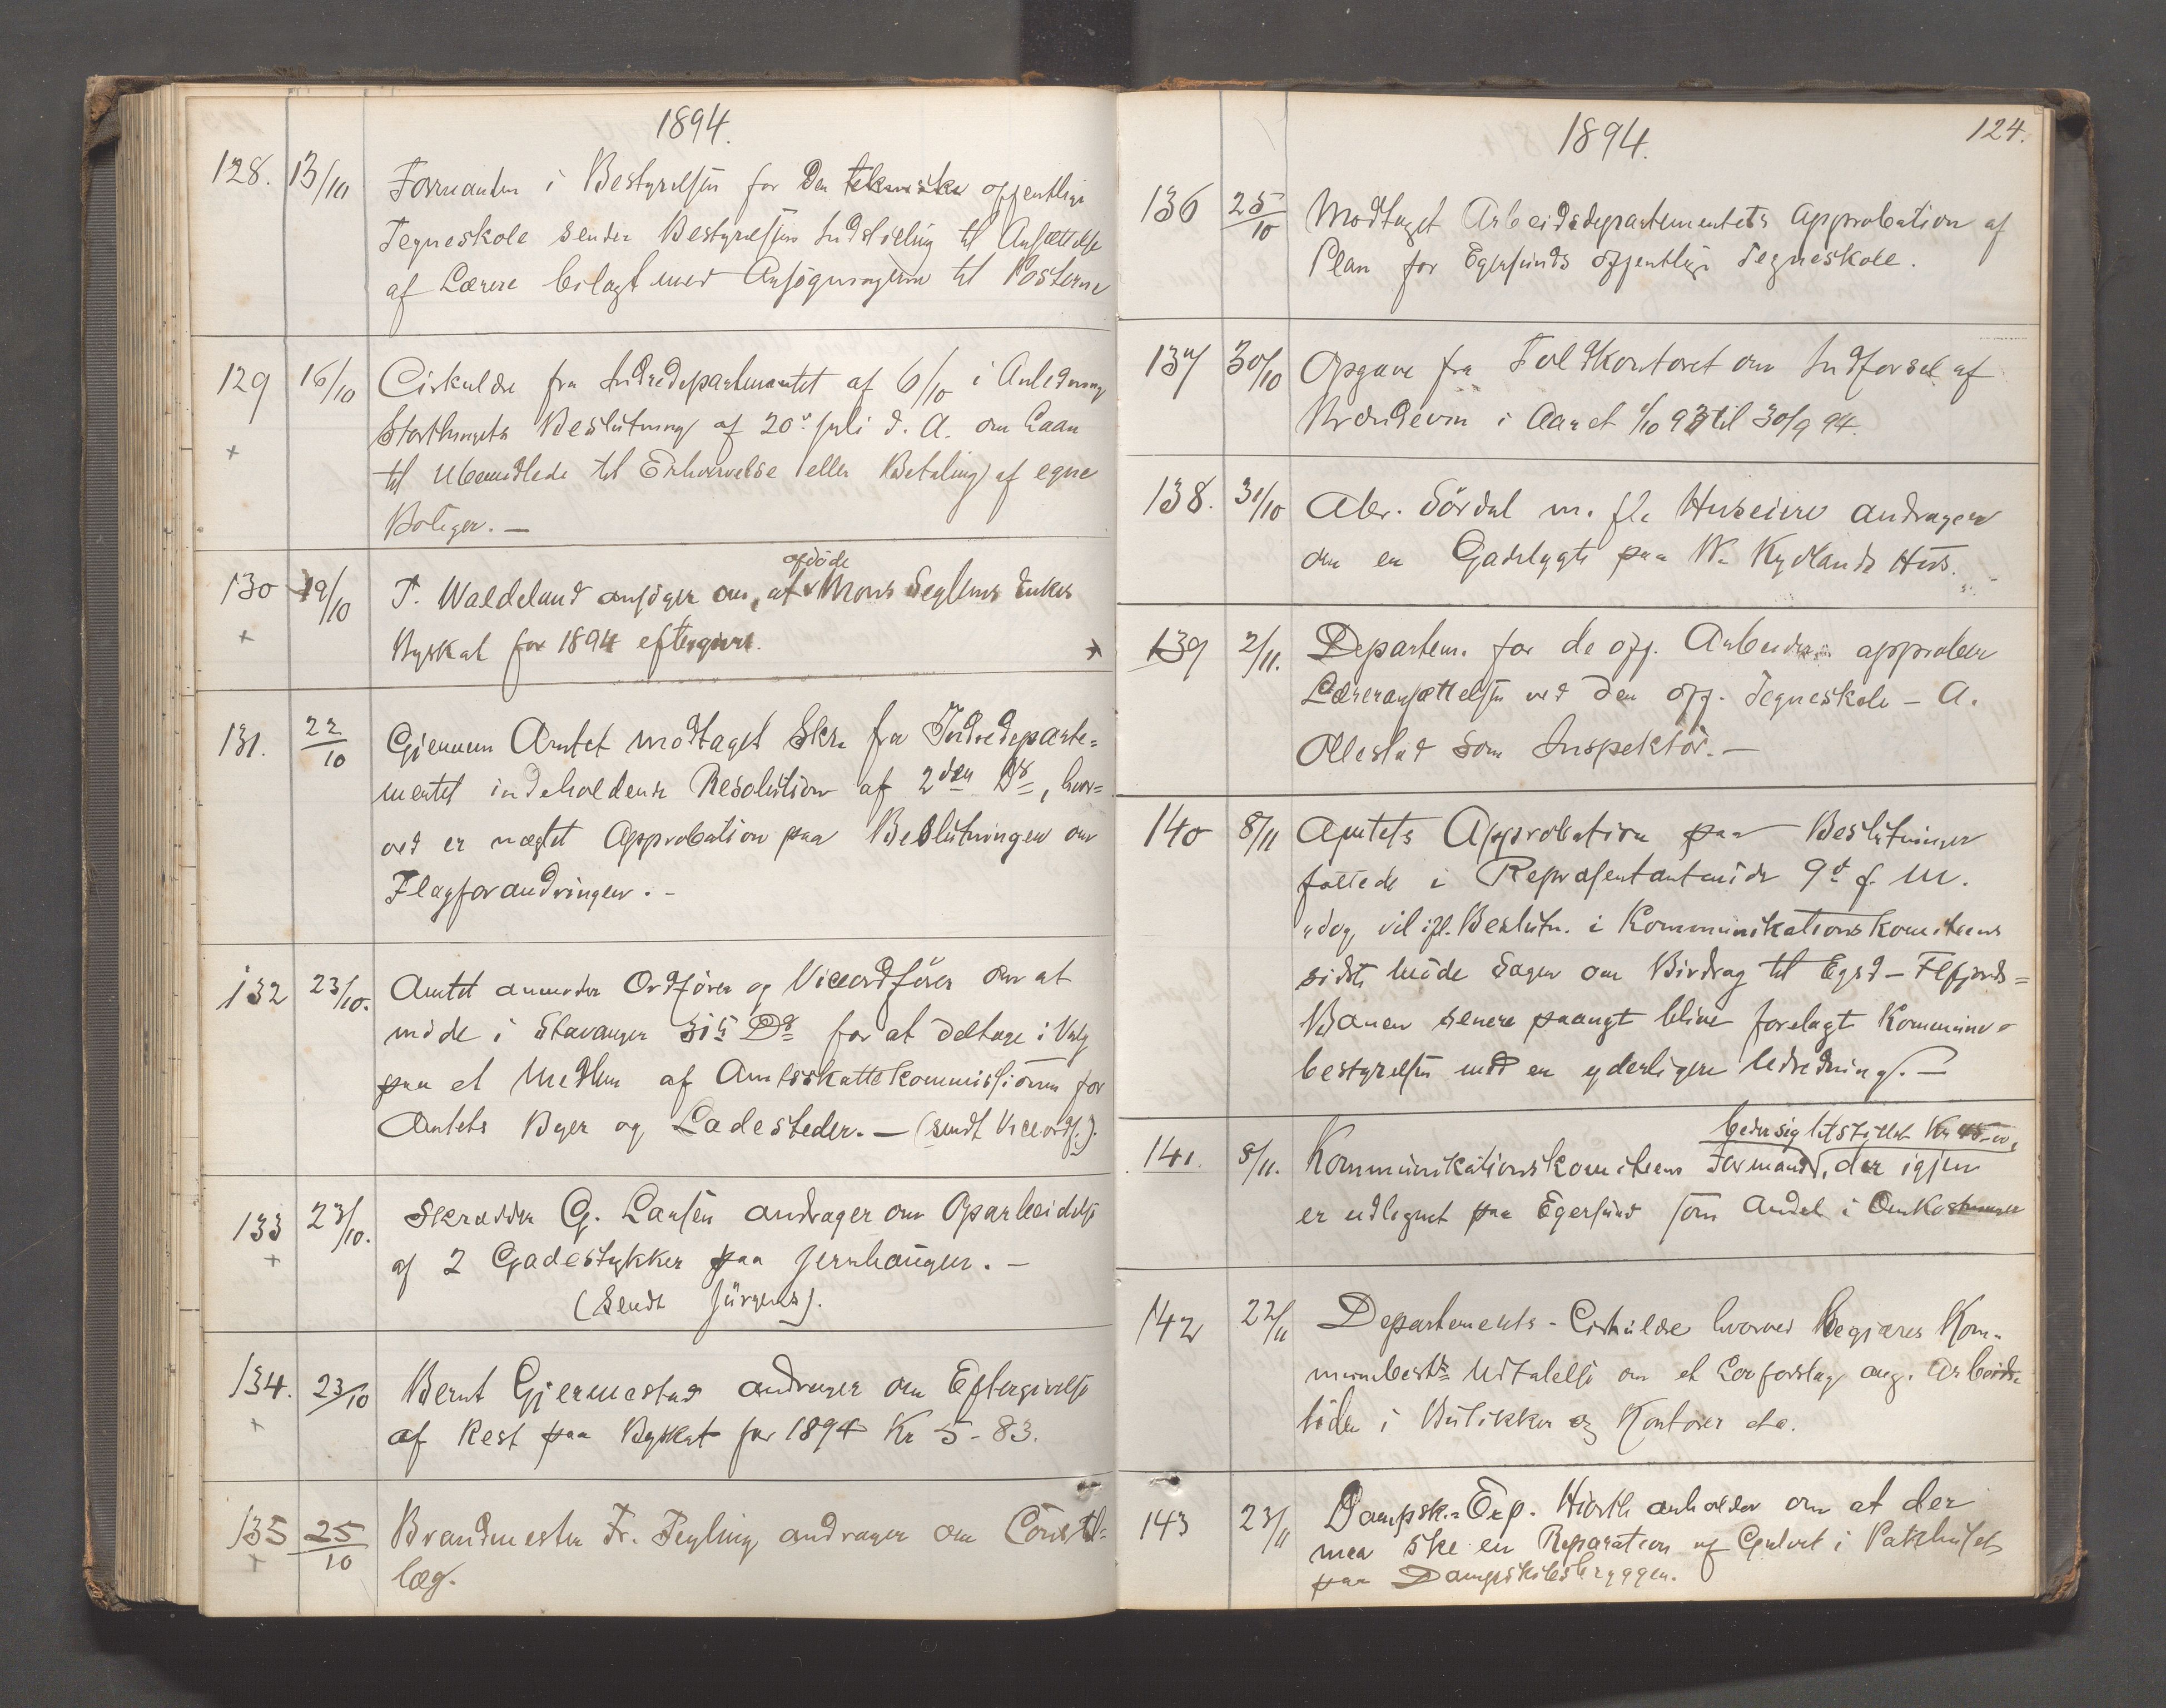 1894.
128. 13/10 Formanden i Bestyrelsen for Den tekniske offentlige
Tegneskole sender Bestyrelsens Indstilling til Ansættelse
af Lærere bilagt med Ansøgningerne til Posterne
129 16/10 Cirkulære fra Indredepartementet af 6/10 i Anledning
+ Storthingets Beslutning af 20de Juli d. A. om Laan
til Ubemidlede til Erhvervelse (eller Betaling) af egne
Boliger. —
afdöde
130 19/10 T. Waldeland ansöger om, at Mons Seglems Enkes
+ Byskat for 1894 eftergives.
131. 22/10 Gjennem Amtet modtaget Skr. fra Indredeparte=
mentet indeholdende Resolution af 2den Ds, hvor=
ved er nægtet Approbation paa Beslutningen om
Flagforandringen. -
132 23/10. Amtet anmoder Ordförer og Viceordförer om at
möde i Stavanger 31te Ds for at deltage i Valg
paa et Medlem af Amtsskattekommissionen for
Amtets Byer og Ladesteder. — (sendt Viceordf.).
133 23/10. Skrædder G. Larsen andrager om Oparbeidelse
+ af 2 Gadestykker paa Jernhaugen. —
(Sendt Jürgens).
134. 23/10 Bernt Gjermestad andrager om Eftergivelse
+ af Rest paa Byskat for 1894 Kr 5-83.
135 25/10 Brandmester Fr. Feyling andrager om Löns til=
+ læg.
1894. 124.
136 25/10 Modtaget Arbeidsdepartementets Approbation af
Plan for Egersunds offentlige Tegneskole.
137 30/10 Opgave fra Toldkontoret om Indförsel af
Brændevin i Aaret 1/10 93 til 30/9 94.
138. 31/10 Abr. Sördal m. fl. Huseiere andrager
om en Gadelygte paa W. Kydlands Hus.
139 2/11. Departem. for de off. Arbeider approberer
Læreransættelsen ved den off. Tegneskole - A.
Ollestad som Inspektör. —
140 8/11 Amtets Approbation paa Beslutninger
fattede i Repræsentantmöde 9de f. M.
"dog vil ifl. Beslutn. i Kommunikationskomiteens
sidste Möde Sagen om Bidrag til Egsd - Flekfjords=
Banen senere paany blive forelagt Kommune=
bestyrelsen med en yderligere Udredning. —
beder sig tilstillet Kr
141. 8/11. Kommunikationskomiteens Formand, der igjen
er udlignet paa Egersund som Andel i Omkostninger
142 22/11 Departements-Cirkulære hvorved begjæres Kom=
munebests Udtalelse om et Lovforslag ang. Arbeids=
tiden i Butikker og Kontorer etc.
143 23/11 Dampsk.-Exp. Hiorth anholder om at der
maa ske en Reparation af Gulvet i Pakhuset
paa Dampskibsbryggen.